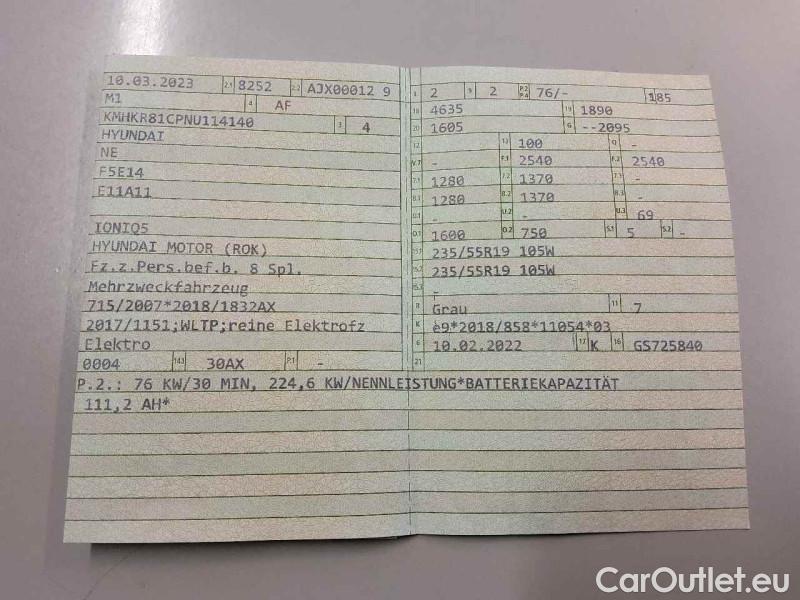 10.03.2023 2.1 8252 2.2 AJX00012 9
M1 4 AF
KMHKR81CPNU114140 3 4
HYUNDAI
NE
F5E14
E11A11
IONIQ5
HYUNDAI MOTOR (ROK)
Fz.z.Pers.bef.b. 8 Spl.
Mehrzweckfahrzeug
715/2007*2018/1832AX
2017/1151;WLTP;reine Elektrofz
Elektro
0004 14.1 30AX P.1 -
L 2 9 2 P.2 P.4 76/- 185
18 4635 19 1890
20 1605 G --2095
12 - 13 100 Q -
V.7 - F.1 2540 F.2 2540
7.1 1280 7.2 1370 7.3 -
8.1 1280 8.2 1370 8.3 -
U.1 - U.2 - U.3 69
O.1 1600 O.2 750 S.1 5 S.2 -
15.1 235/55R19 105W
15.2 235/55R19 105W
15.3 -
R Grau 11 7
K e9*2018/858*11054*03
6 10.02.2022 17 K 16 GS725840
21
P.2.: 76 KW/30 MIN, 224,6 KW/NENNLEISTUNG*BATTERIEKAPAZITÄT
111,2 AH*
CarOutlet.eu